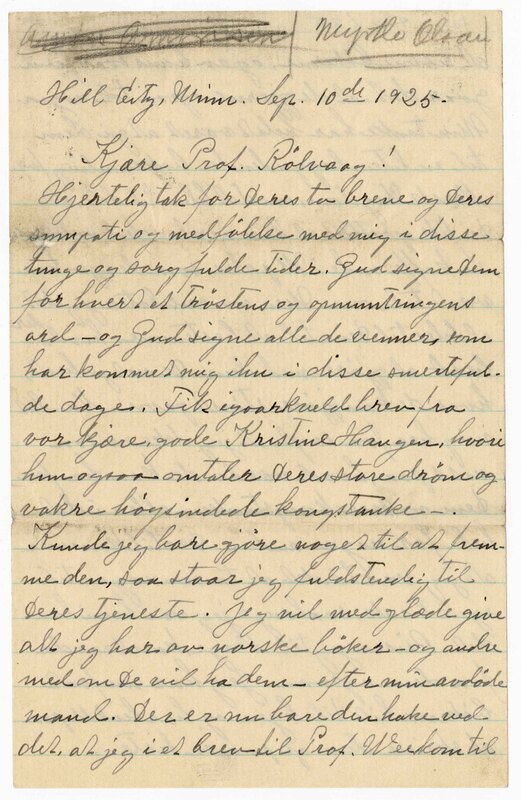 Myrtle Olson
Hill City, Minn. Sep. 10de 1925.
Kjære Prof. Rölvaag!
Hjertelig tak for Deres to breve og Deres
sympati og medfölelse med mig i disse
tunge og sorgfulde tider. Gud signe Dem
for hvert et tröstens og opmuntringens
ord – og Gud signe alle de venner, som
har kommet mig ihu i disse smerteful-
de dage. Fik igaarkveld brev fra
vor kjære, gode Kristine Haugen, hvori
hun ogsaa omtaler Deres store dröm og
vakre högsindede kongstanke –.
Kunde jeg bare gjöre noget til at frem-
me den, saa staar jeg fuldstendig til
Deres tjeneste. Jeg vil med glæde give
alt jeg har av norske böker – og andre
med om De vil ha dem – efter min avdöde
mand. Der er nu bare den hake ved
det, at jeg i et brev til Prof. til